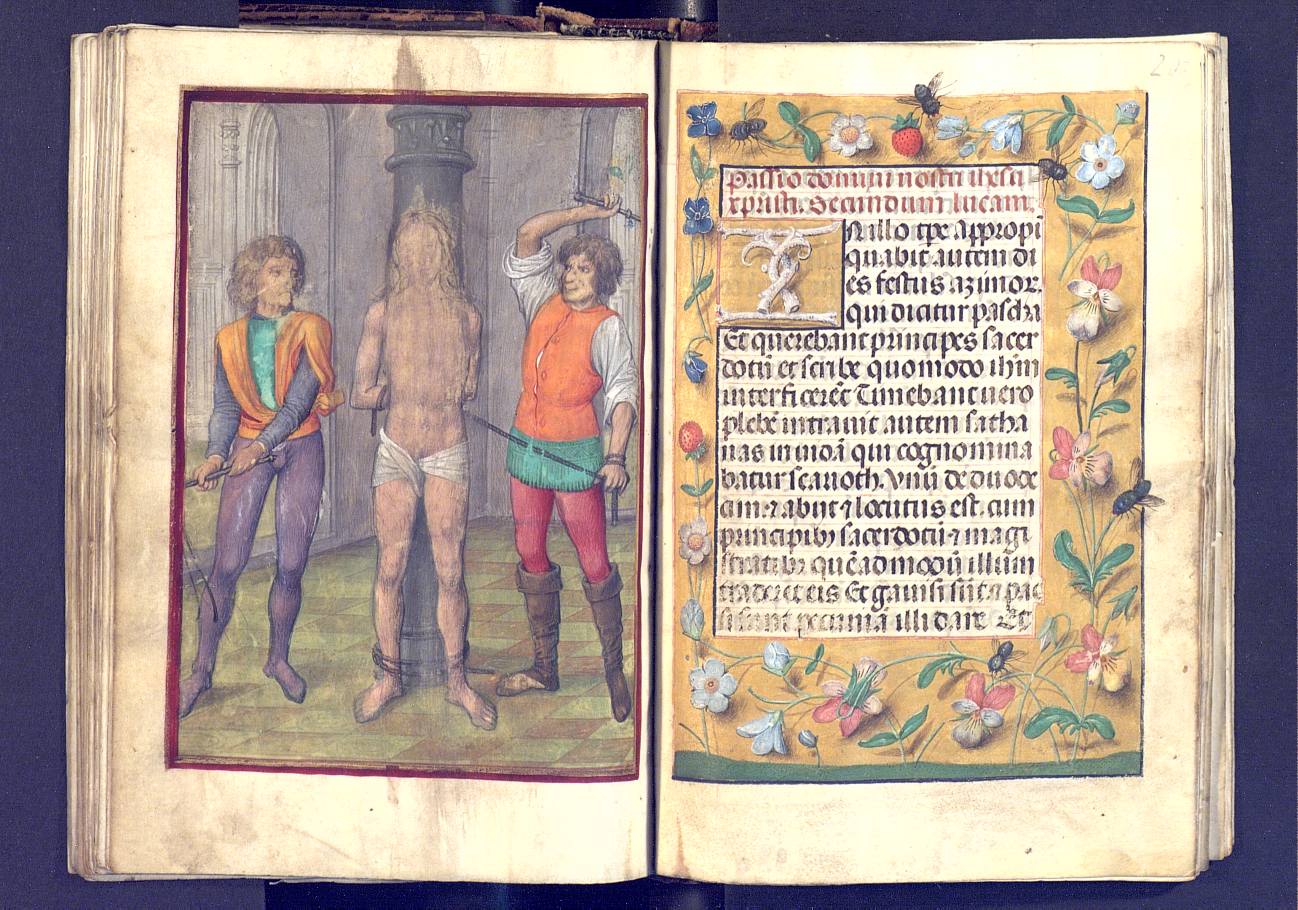 Passio domini nostri ihesu
xpristi. Secundum lucam.
In illo tpe Appropi
quabit autem di
es festus azimor.
qui dicitur pascha
Et querebant principes sacer
dotū et scribe quomodo ihm
interficerēt Timebant uero
plebē intrauit autem satha
nas in iudā qui cognomina
batur scarioth. Vnū de duode
cim. ⁊ abijt ⁊ locutus est. cum
principibꝫ sacerdotū ⁊ magi
stratibꝫ quēadmodū illum
traderet eis Et gauisi sūt ⁊ pac
ti sunt pecuniā illi dare Et